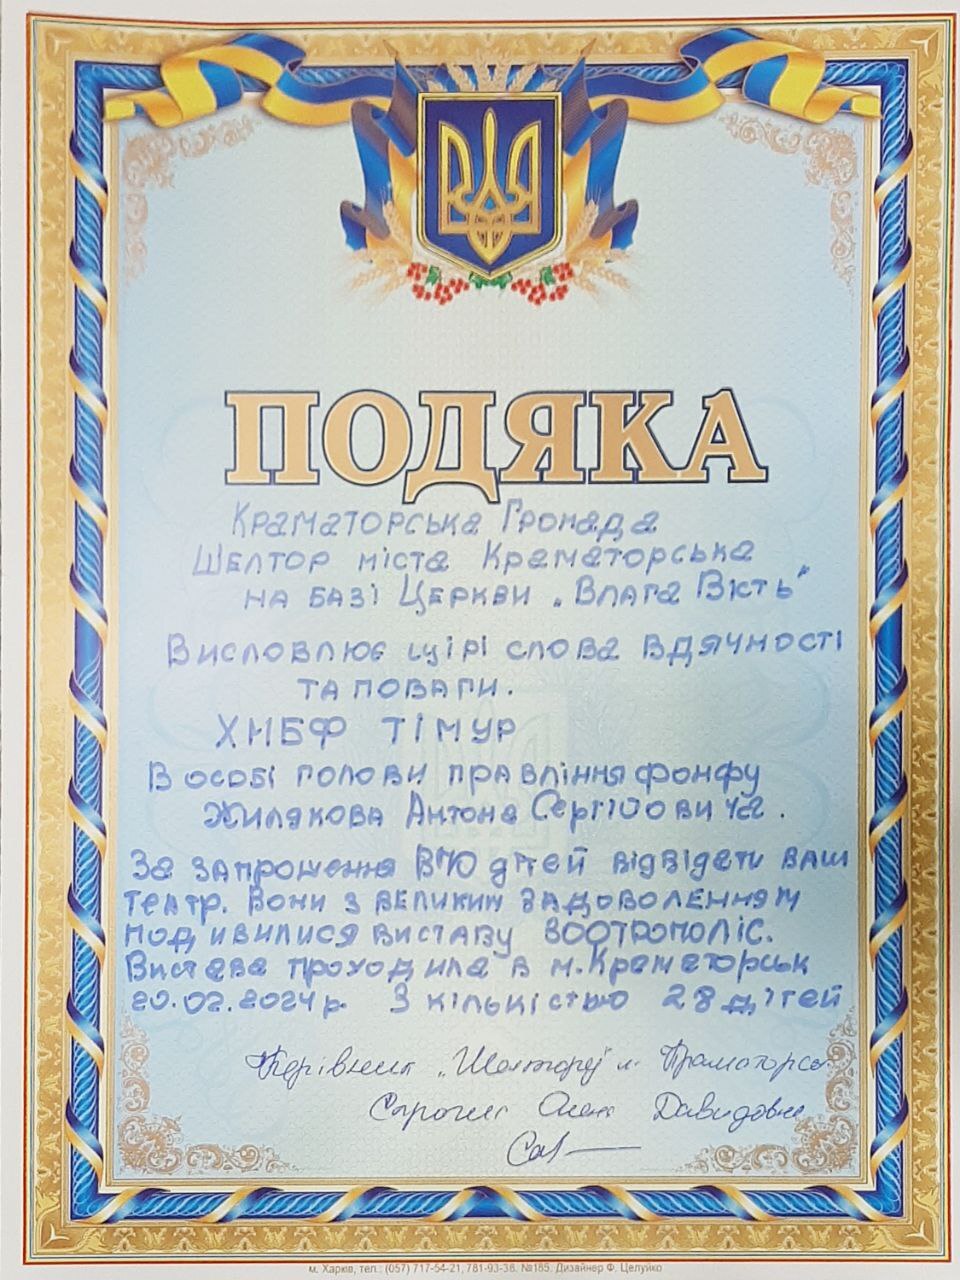 ПОДЯКА
Краматорська Громада
Шелтор міста Краматорська
на базі Церкви „Влага Вість"
Висловлює щірі слова вдячності
та поваги.
ХМБФ ТІМУР
В особі голови правління фонфу
Жилякова Антона Сергійовича.
За запрошення ВПО дітей відвідати ваш
театр. Вони з великим задоволенням
подивилися виставу Зоотрополіс.
Вистава проходила в м.Краматорськ
20.02.2024р. З кількістю 28 дітей
Керівник „Шелтору" м. Краматорськ
Давидовна
м. Харків, тел.: (057) 717-54-21, 781-93-38. №185. Дизайнер Ф. Целуйко